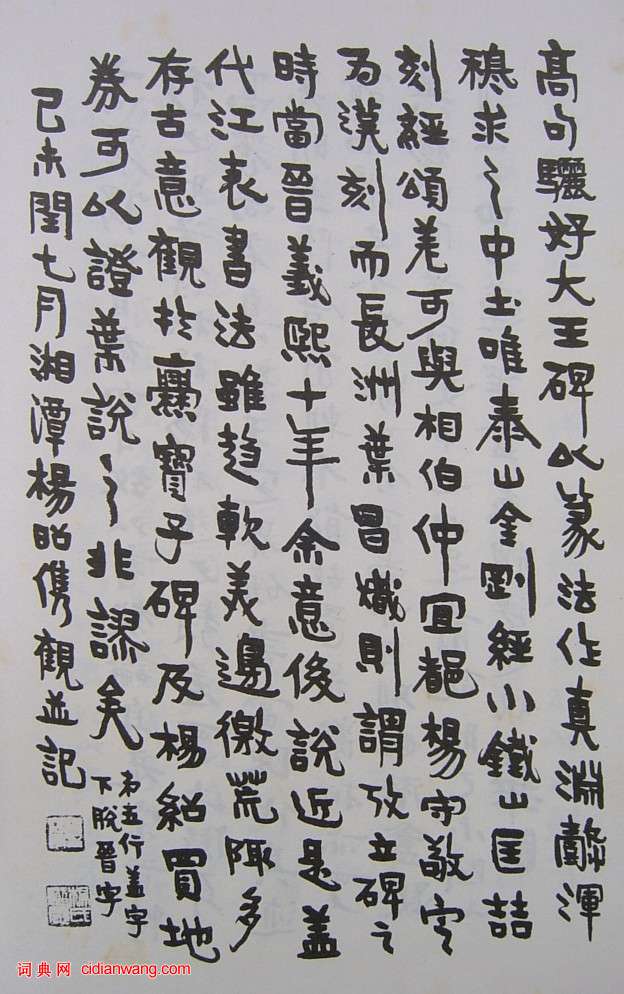 高句驪好大王碑以篆法作真淵懿渾
穆求之中土唯泰山金剛經小鐵山匡喆
刻經頌差可與相伯仲宜都楊守敬定
為漢刻而長洲葉昌熾則謂攷立碑之
時當晉義熙十年余意後說近是蓋
代江表書法雖趋軟美邊徼荒陬多
存古意觀於爨寶子碑及楊紹買地
券可以證葉說之非謬矣
己未閏七月湘潭楊昭儁觀並記
弟五行蓋字
下脫晉字
词典网 cidianwang.com